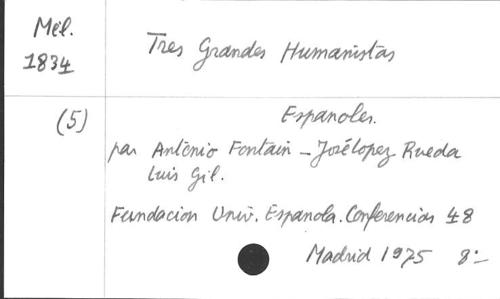 Mél.
1834
Tres Grandes Humanistas
(5)
Espanoles.
par António Fontain - José Lopez Rueda
Luis Gil.
Fundacion Univ. Espanola. Conferencias 48
Madrid 1975 8:-